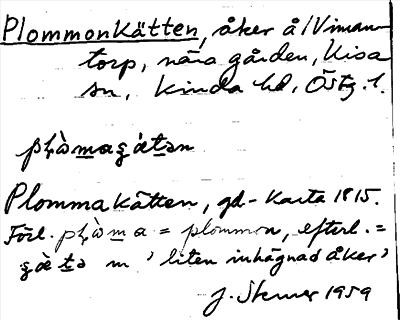 Plommonkätten, åker å/Viman-
torp, nära gården, Kisa
sn, Kinda hd, Östg. l.
Plommakätten, gd-karta 1815.
Förl. = plommon, efterl. =
m 'liten inhägnad åker'
J. Stenur 1959